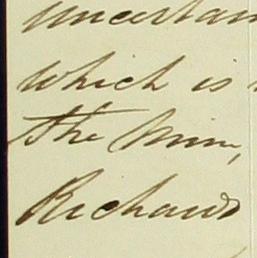 uncertain
which is
the
Richards